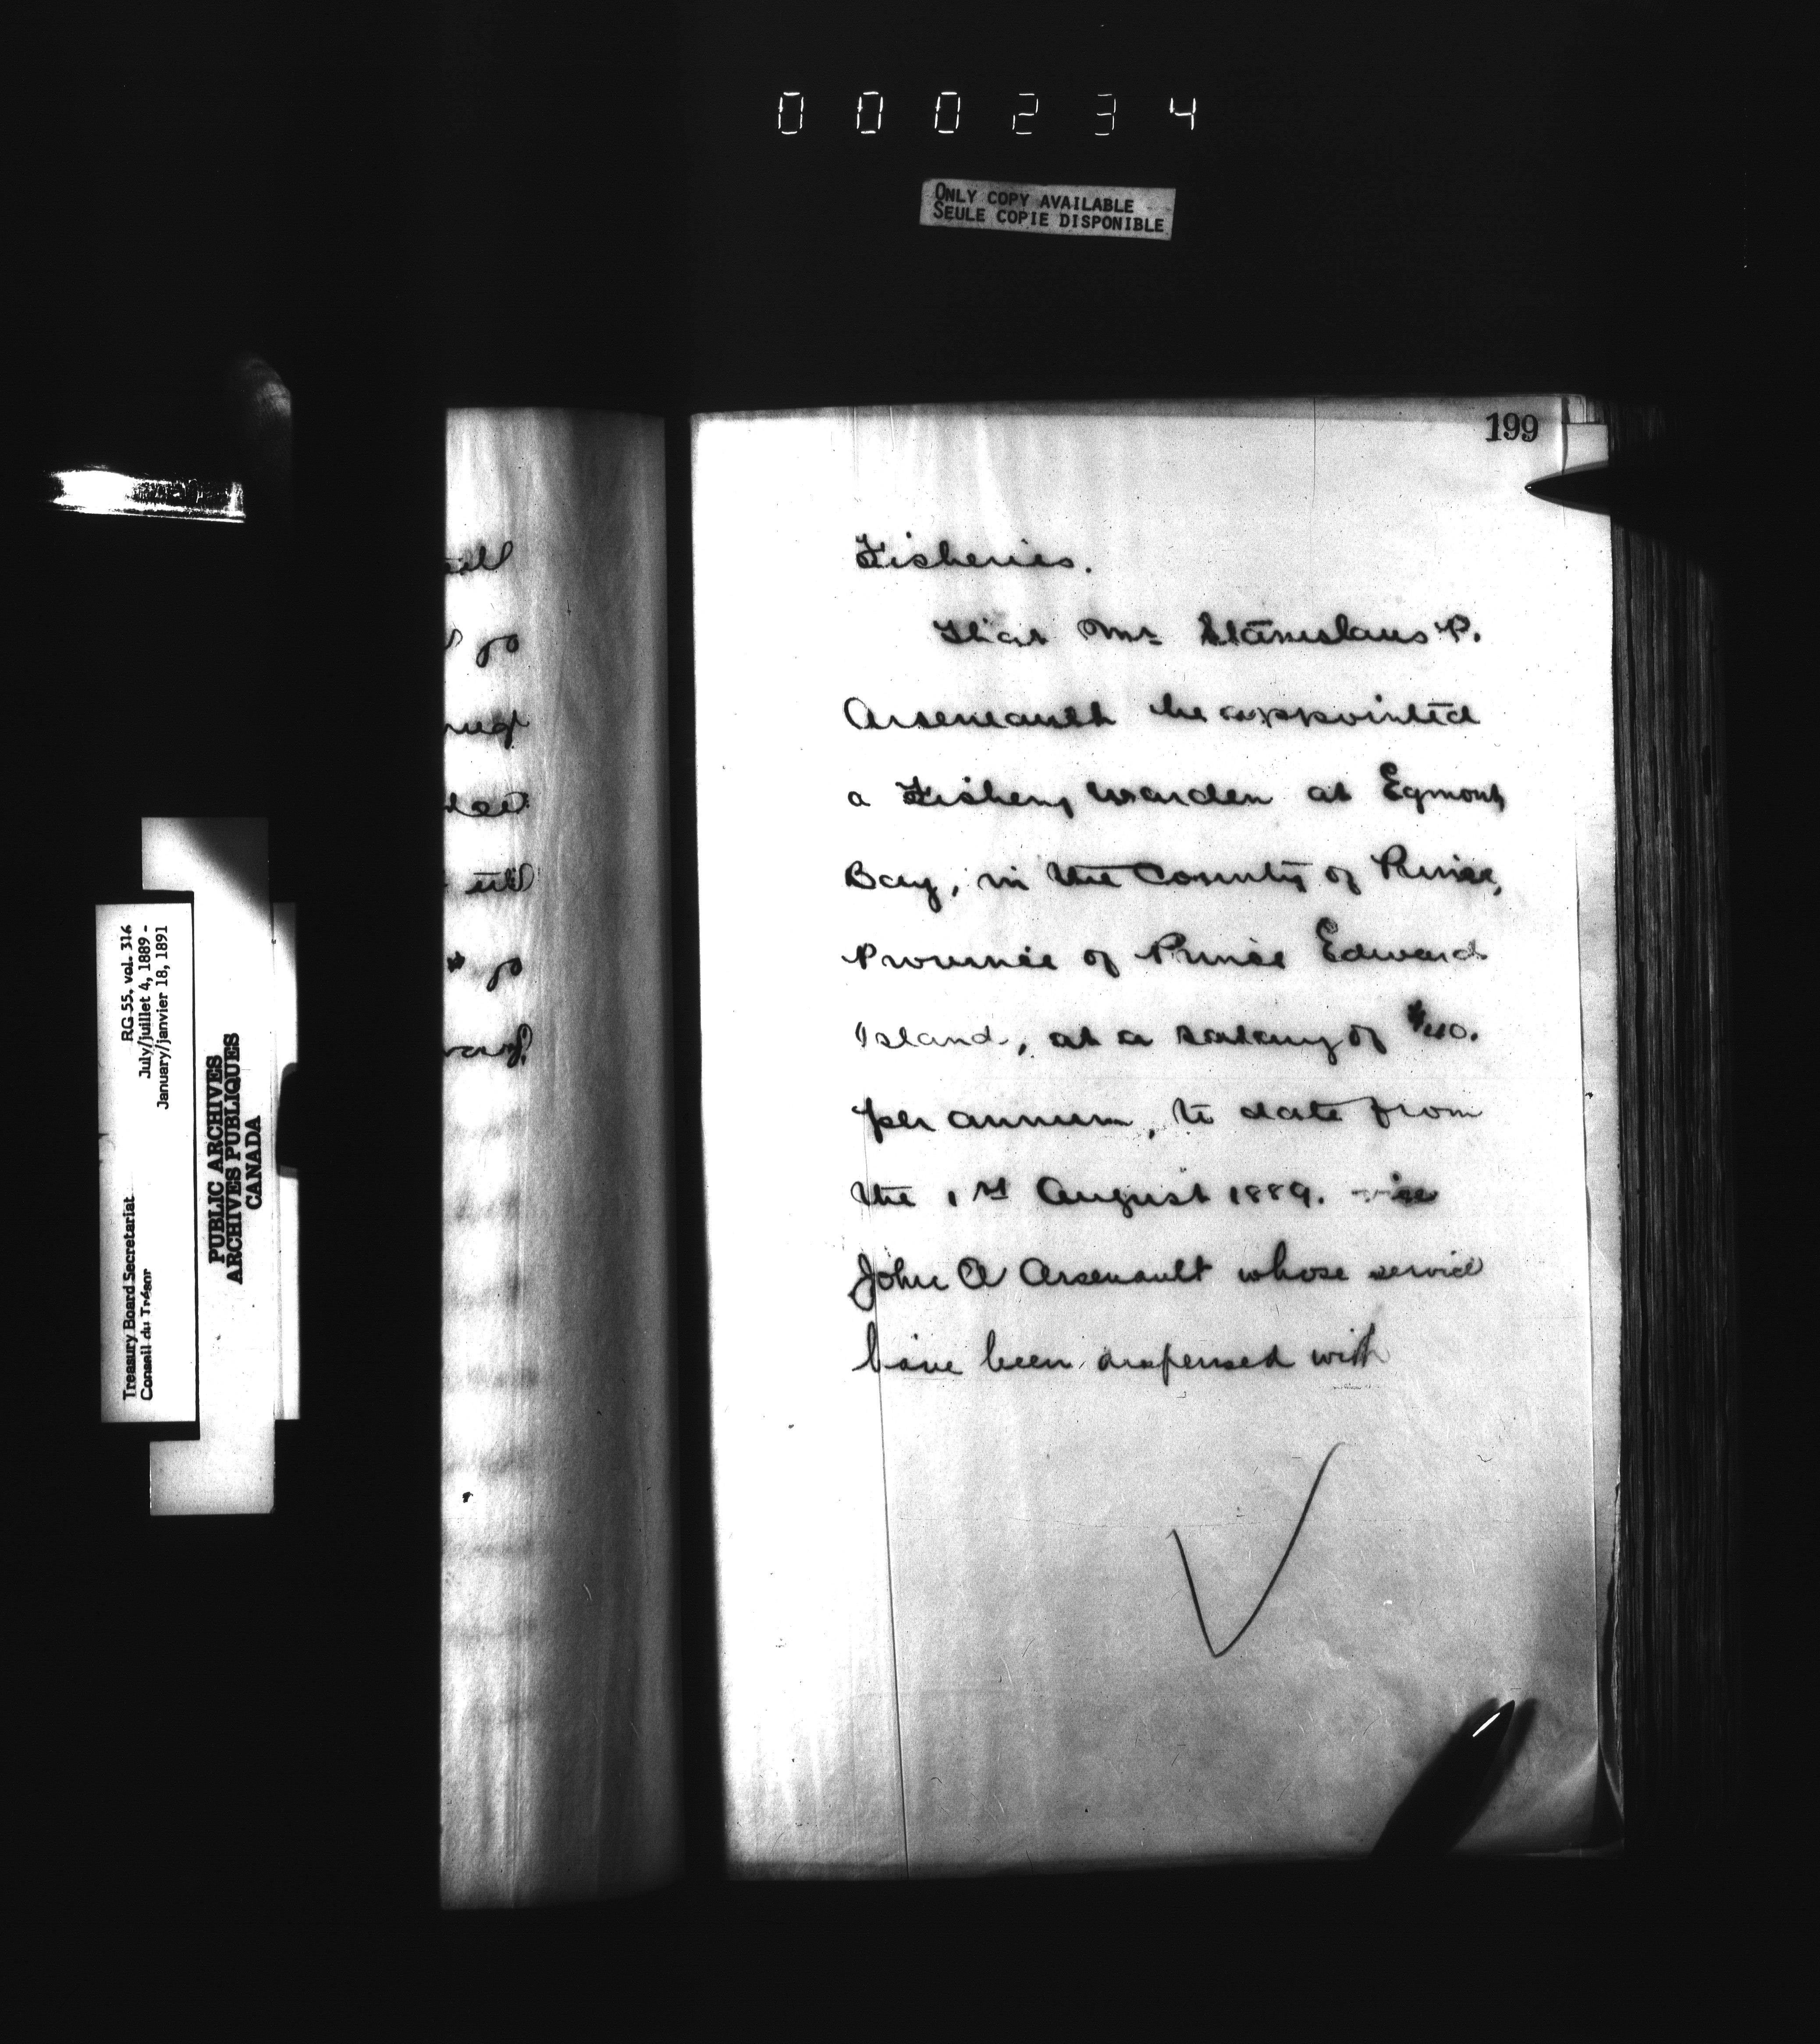 000234
ONLY COPY AVAILABLE
SEULE COPIE DISPONIBLE
199
Fisheries.
That Mr Stanislaus P.
Arseneault be appointed
a Fishery Warden at Egmont
Bay, in the County of Prince,
Province of Prince Edward
Island, at a salary of $40.
per annum, to date from
the 1st August 1889. vice
John A Arsenault whose service
have been dispensed with
RG 55. vol. 316
July/juillet 4, 1889 -
January/janvier 18, 1891
Treasury Board Secretariat
Conseil du Trésor
PUBLIC ARCHIVES
ARCHIVES PUBLIQUES
CANADA